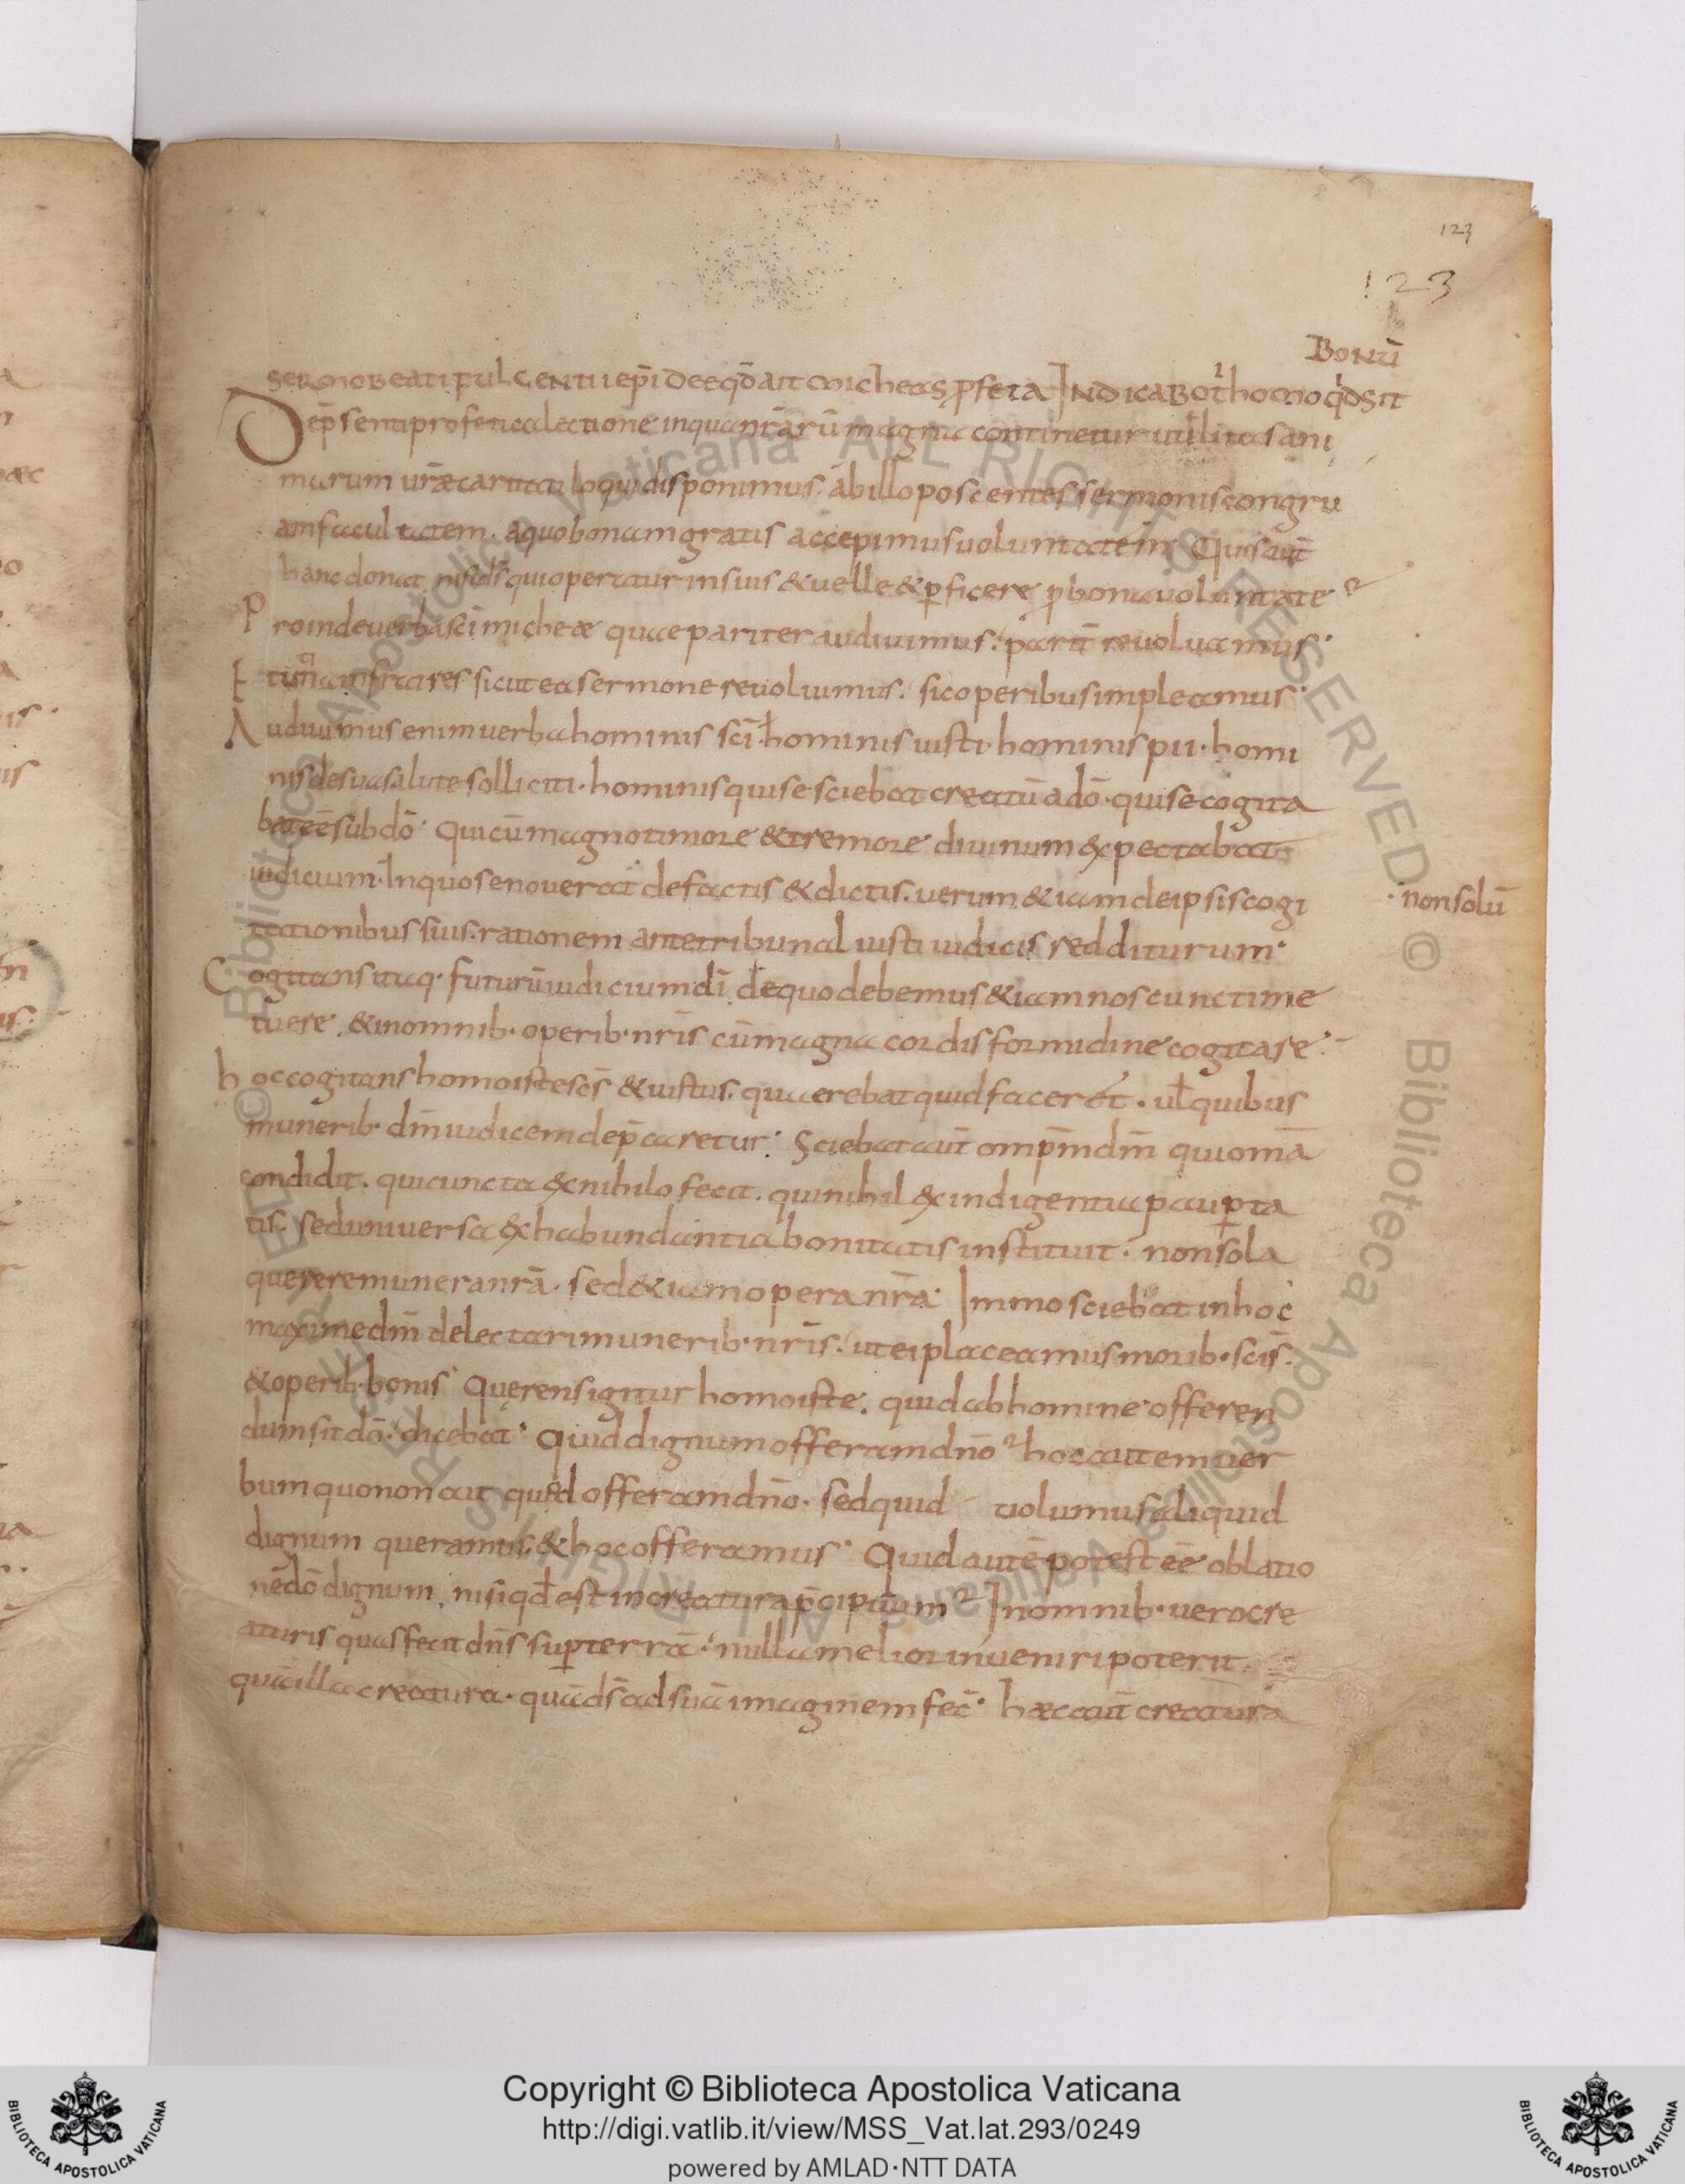 123
123
BONŪ
SERMO BEATI FULGENTII EP̄I DE EO QD̄ AIT MICHEAS P̱FETA INDICABO TIBI HOMO QD̄ SIT
De p̄senti profetica lectione in qua nr̄arū magna continetur utilitas ani
marum ur̄æ caritati loqui disponimus. ab illo poscentes sermonis congru
am facultatem. a quo bonam gratis accepimus uoluntatem. Quis aut̄
hanc donat nisi ds̄ qui operatur in suis & uelle & p̱ficere p̱ bona uoluntate
Proinde uerba sc̄i micheæ quae pariter audiuimus. parit̄ reuoluamus.
Et fratres sicut ea sermone reuoluimus. sic operibus impleamus.
Audiuimus enim uerba hominis sc̄i. hominis iusti. hominis pii. homi
nis de sua salute solliciti. hominis qui se sciebat creatū a dō. qui se cogita
bat eē sub dō. Qui cū magno timore & tremore diuinum expectabat
iudicium. In quo se nouerat de factis & dictis. uerum & iam de ipsis cogi
non solū
tationibus suis. rationem ante tribunal iusti iudicis redditurum.
Cogitans itaq. futurū iudicium dī. de quo debemus & iam nos cuncti me
tuere. & in omnib. operib. nr̄is cū magna cordis formidine cogitare.
hoc cogitans homo iste sc̄s & iustus. quaerebat quid faceret. ul̄ quibus
munerib. dm̄ iudicem dep̄caretur. Sciebat aut̄ omp̄m dm̄ qui om̄a
condidit. qui cuncta ex nihilo fecit. qui nihil ex indigentia paup̱ta
tis. sed uniuersa ex habundantia bonitatis instituit. non sola
querere munera nr̄a. sed & iam opera nr̄a. Immo sciebat in hoc
maxime dm̄ delectari munerib. nr̄is. ut ei placeamus morib. sc̄is.
& operib. bonis. Querens igitur homo iste. quid ab homine offeren
dum sit dō. dicebat. Quid dignum offeram dn̄o hoc autem uer
bum quo non ait quid offeram dn̄o. sed quid uolumus aliquid
dignum queramus. & hoc offeramus. Quid autē potest eē oblatio
ne dō dignum. nisi qd̄ est in creatura p̄cipuum In omnib. uero cre
aturis quas fecit dn̄s sup̱ terrā. nulla melior inueniri poterit.
quā illa creatura. quā ds̄ ad suā imaginem fec̄. hæc aut̄ creatura
Copyright © Biblioteca Apostolica Vaticana
http://digi.vatlib.it/view/MSS_Vat.lat.293/0249
powered by AMLAD·NTT DATA
BIBLIOTECA APOSTOLICA VATICANA
BIBLIOTECA APOSTOLICA VATICANA